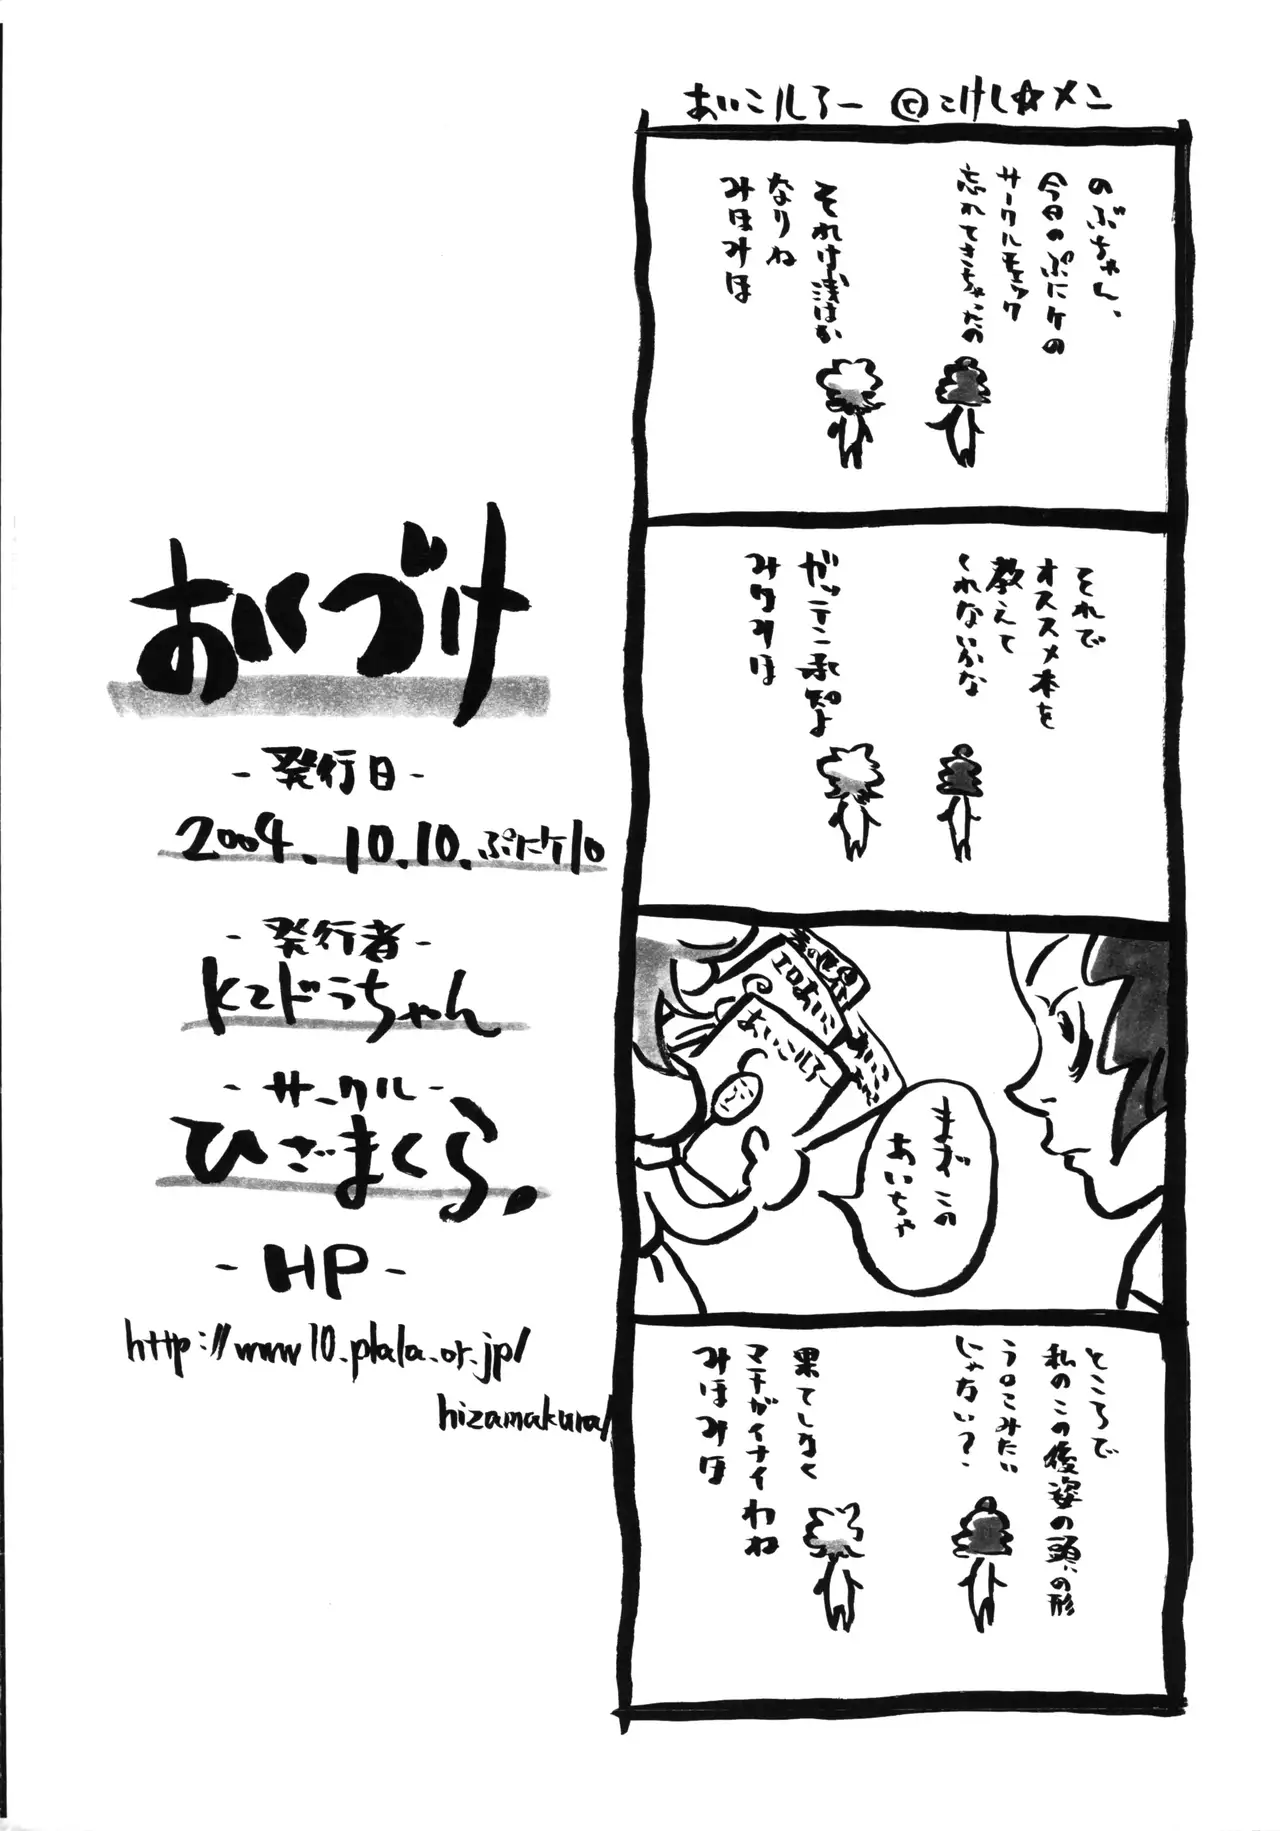 あいこルろー ©こけし☆メン
のぶちゃん、
今日のぷにケの
サークルチェック
忘れてきちゃったの
それは浅はか
なりね
みほみほ
それで
オススメ本を
教えて
くれないかな
ガッテン承知よ
みほみほ
エロあいこ
あいこルろー
まずこの
あいちゃ
ところで
私のこの後姿の頭の形
う○こみたい
じゃない?
果てしなく
マチガイナイわね
みほみほ
あいづけ
-発行日-
2004.10.10.ぷにケ10
-発行者-
K2ドラちゃん
-サークル-
ひざまくら。
-HP-
http://www10.plala.or.jp/
hizamakura/